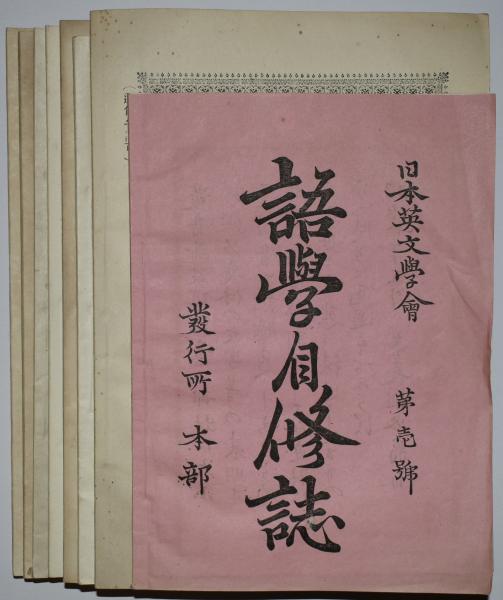 日本英文學會 苐壱號
語學自修誌
發行所 本部